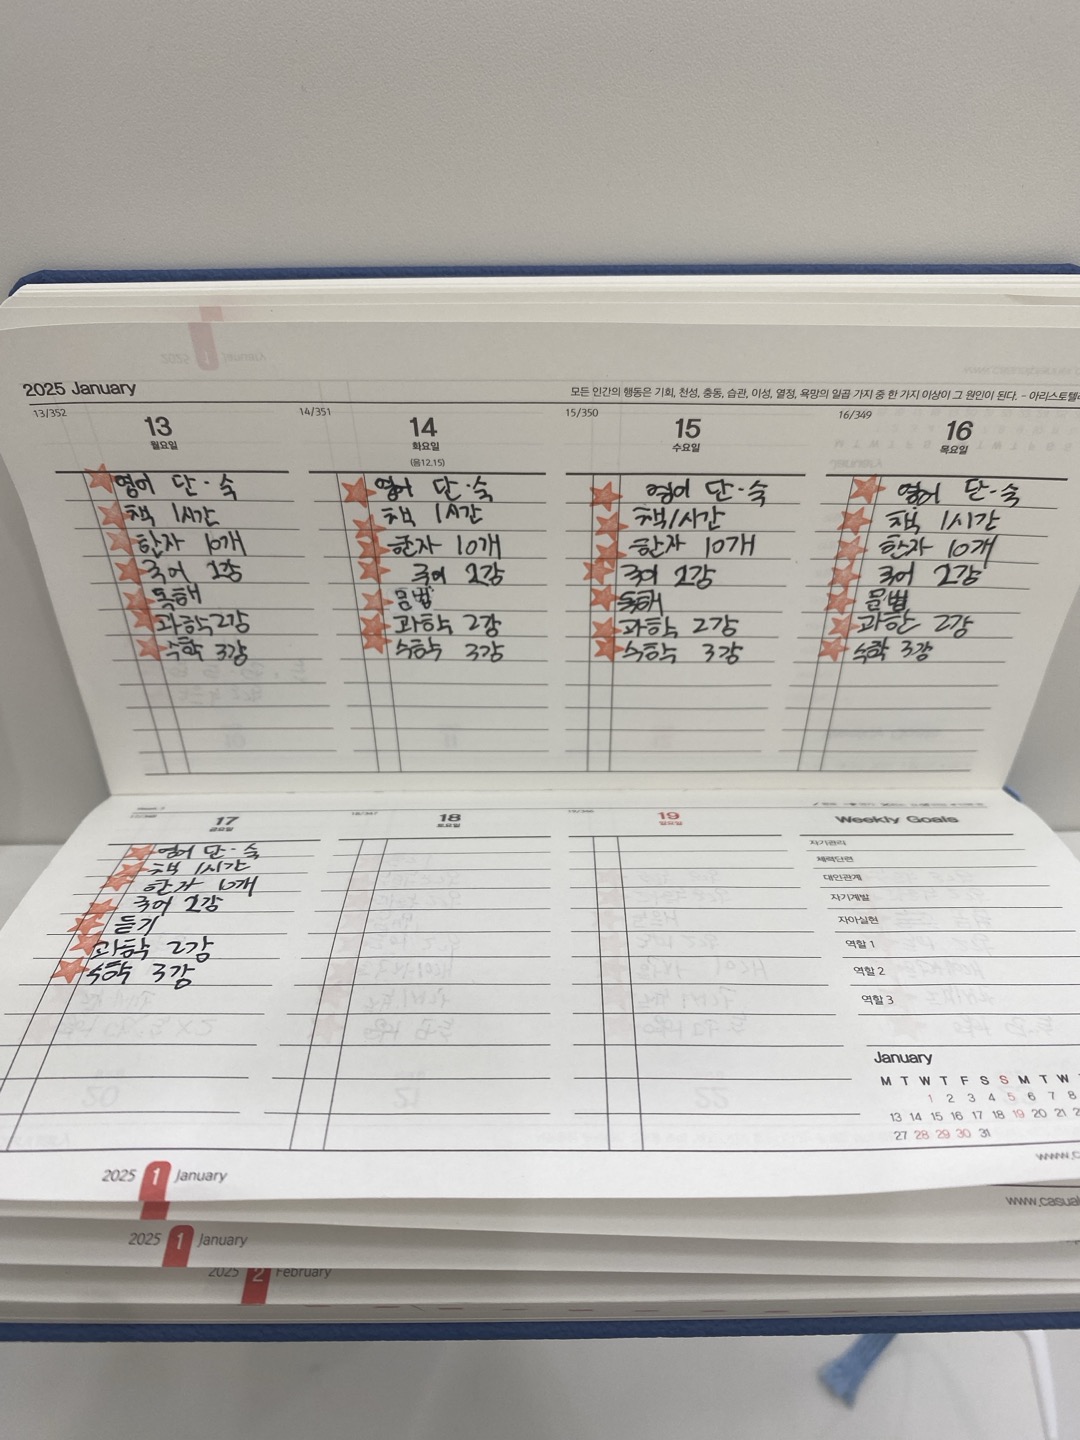 2025 January
모든 인간의 행동은 기회, 천성, 충동, 습관, 이성, 열정, 욕망의 일곱 가지 중 한 가지 이상이 그 원인이 된다. - 아리스토텔
13/352
13
월요일
영어 단·숙
책 1시간
한자 10개
국어 2강
독해
과학 2강
수학 3강
14/351
14
화요일
(음12.15)
영어 단·숙
책 1시간
한자 10개
국어 2강
문법
과학 2강
수학 3강
15/350
15
수요일
영어 단·숙
책 1시간
한자 10개
국어 2강
독해
과학 2강
수학 3강
16/349
16
목요일
영어 단·숙
책 1시간
한자 10개
국어 2강
문법
과학 2강
수학 3강
17
금요일
영어 단·숙
책 1시간
한자 10개
국어 2강
듣기
과학 2강
수학 3강
18
토요일
19
일요일
Weekly Goals
자기관리
체력단련
대인관계
자기계발
자아실현
역할 1
역할 2
역할 3
January
M T W T F S S M T W
1 2 3 4 5 6 7 8
13 14 15 16 17 18 19 20 21
27 28 29 30 31
2025 1 January
www.casual
2025 1 January
2025 2 February